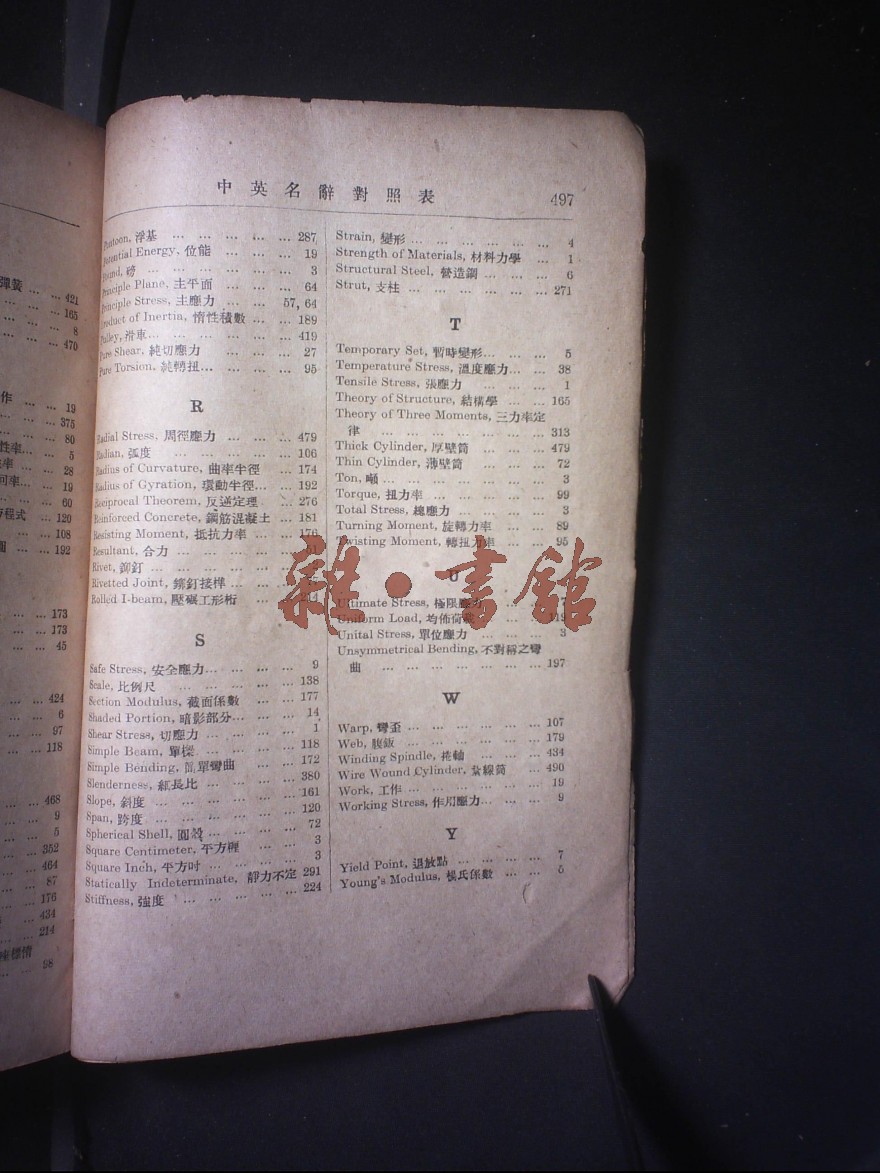 中英名辭對照表 497
Pontoon, 浮基 ... ... ... ... ... 287
Potential Energy, 位能 ... ... ... 19
Pound, 磅 ... ... ... ... ... ... 3
Principle Plane, 主平面 ... ... ... 64
Principle Stress, 主應力 ... ... 57, 64
Product of Inertia, 惰性積數 ... ... 189
Pulley, 滑車... ... ... ... ... ... 419
Pure Shear, 純切應力 ... ... ... 27
Pure Torsion, 純轉扭... ... ... ... 95
R
Radial Stress, 周徑應力 ... ... ... 479
Radian, 弧度 ... ... ... ... ... 106
Radius of Curvature, 曲率半徑 ... ... 174
Radius of Gyration, 環動半徑... ... ... 192
Reciprocal Theorem, 反逆定理 ... ... 276
Reinforced Concrete, 鋼筋混凝土 ... 181
Resisting Moment, 抵抗力率 ... ... 176
Resultant, 合力 ... ... ... ... ...
Rivet, 鉚釘 ... ... ... ...
Rivetted Joint, 鉚釘接榫 ... ...
Rolled I-beam, 壓碾工形桁 ... ...
S
Safe Stress, 安全應力... ... ... ... 9
Scale, 比例尺 ... ... ... ... ... 138
Section Modulus, 截面係數 ... ... 177
Shaded Portion, 暗影部分... ... ... 14
Shear Stress, 切應力 ... ... ... ... 1
Simple Beam, 單樑 ... ... ... ... 118
Simple Bending, 簡單彎曲 ... ... 172
Slenderness, 細長比 ... ... ... ... 380
Slope, 斜度 ... ... ... ... ... ... 161
Span, 跨度 ... ... ... ... ... ... 120
Spherical Shell, 圓殼 ... ... ... ... 72
Square Centimeter, 平方糎 ... ... 3
Square Inch, 平方吋 ... ... ... ... 3
Statically Indeterminate, 靜力不定 291
Stiffness, 強度 ... ... ... ... ... 224
Strain, 變形 ... ... ... ... ... ... 4
Strength of Materials, 材料力學 ... 1
Structural Steel, 營造鋼 ... ... ... 6
Strut, 支柱 ... ... ... ... ... ... 271
T
Temporary Set, 暫時變形... ... ... 5
Temperature Stress, 溫度應力... ... 38
Tensile Stress, 張應力 ... ... ... 1
Theory of Structure, 結構學 ... ... 165
Theory of Three Moments, 三力率定
律 ... ... ... ... ... ... ... 313
Thick Cylinder, 厚壁筒 ... ... ... 479
Thin Cylinder, 薄壁筒 ... ... ... 72
Ton, 噸 ... ... ... ... ... ... ... 3
Torque, 扭力率 ... ... ... ... ... 99
Total Stress, 總應力 ... ... ... ... 3
Turning Moment, 旋轉力率 ... ... 89
Twisting Moment, 轉扭力率 ... ... 95
U
Ultimate Stress, 極限應力 ... ... 7
Uniform Load, 均佈荷載 ... ... 119
Unital Stress, 單位應力 ... ... ... 3
Unsymmetrical Bending, 不對稱之彎
曲 ... ... ... ... ... ... ... 197
W
Warp, 彎歪 ... ... ... ... ... ... 107
Web, 腹鈑 ... ... ... ... ... ... 179
Winding Spindle, 捲軸 ... ... ... 434
Wire Wound Cylinder, 紮線筒 ... 490
Work, 工作 ... ... ... ... ... ... 19
Working Stress, 作用應力... ... ... 9
Y
Yield Point, 退放點 ... ... ... ... 7
Young's Modulus, 楊氏係數 ... ... 5
雜·書館
彈簧 ... ... 421
... ... 165
... ... 8
... ... 470
作 ... ... 19
... ... 375
... ... 80
性率... ... 5
... ... 28
... ... 19
... ... 60
方程式 ... 120
... ... 108
... 192
... ... 173
... ... 173
... ... 45
... ... 424
... ... 6
... ... 97
... ... 118
... ... 468
... ... 9
... ... 5
... ... 352
... ... 464
... ... 87
... ... 176
... ... 434
... ... 214
... ... 98